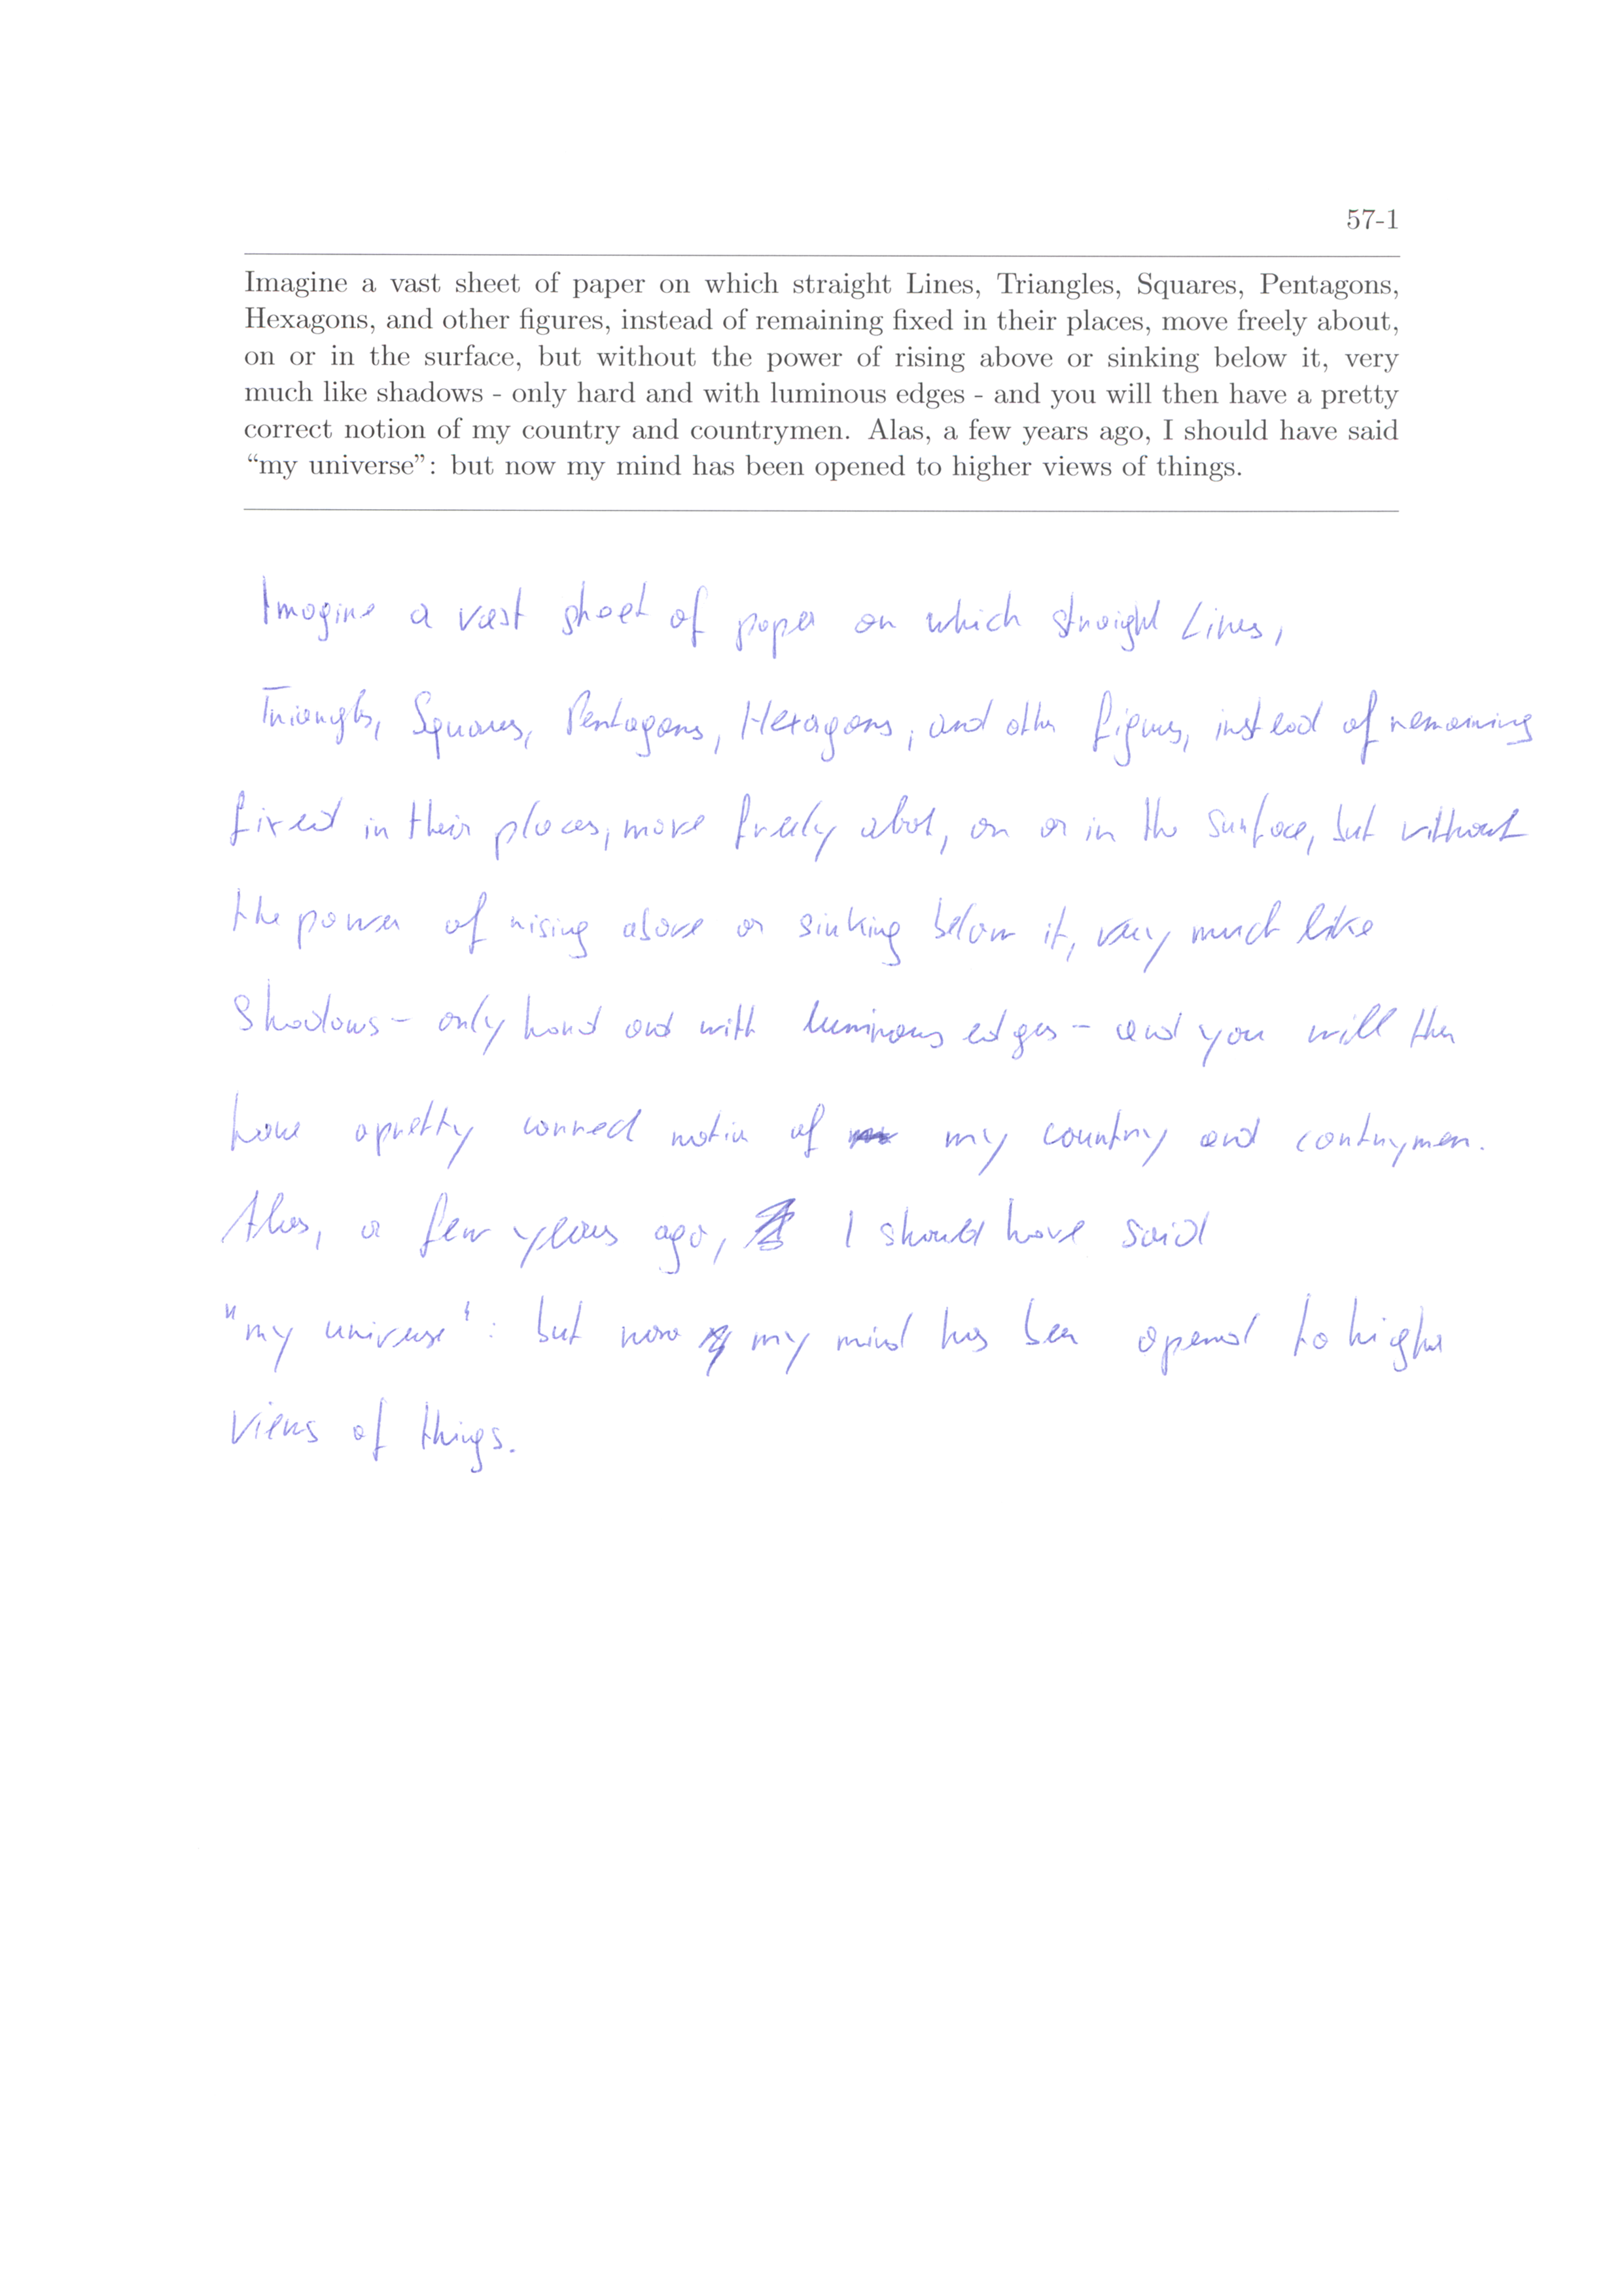 57-1
Imagine a vast sheet of paper on which straight Lines, Triangles, Squares, Pentagons,
Hexagons, and other figures, instead of remaining fixed in their places, move freely about,
on or in the surface, but without the power of rising above or sinking below it, very
much like shadows - only hard and with luminous edges - and you will then have a pretty
correct notion of my country and countrymen. Alas, a few years ago, I should have said
“my universe”: but now my mind has been opened to higher views of things.
Imagine a vast sheet of paper on which straight Lines,
Triangles, Squares, Pentagons, Hexagons, and other figures, instead of remaining
fixed in their places, move freely abot, on or in the surface, but without
the power of rising above or sinking below it, very much like
Shadows - only hard and with luminous edges - and you will then
have a pretty correct notion of my country and contrymen.
Alas, a few years ago, I should have said
"my universe": but now my mind has been opened to higher
views of things.